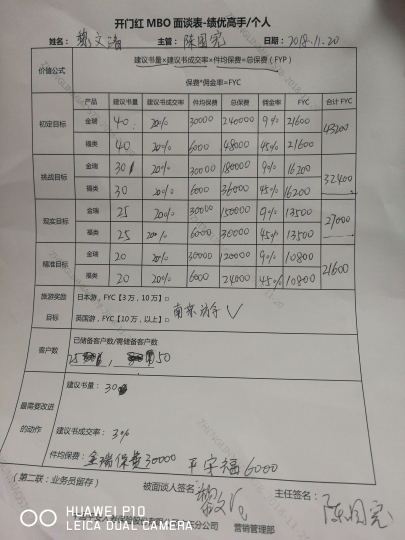 开门红 MBO 面谈表-绩优高手/个人
姓名： 主管：陈国宪 日期：2018.11.20
价值公式 建议书量×建议书成交率×件均保费=总保费（FYP）
保费*佣金率=FYC
产品 建议书量 建议书成交率 件均保费 总保费 佣金率 FYC 合计 FYC
初定目标 金瑞 40 20% 30000 240000 9% 21600 43200
福类 40 20% 6000 48000 45% 21600
挑战目标 金瑞 30 20% 30000 180000 9% 16200 32400
福类 30 20% 6000 36000 45% 16200
现实目标 金瑞 25 20% 30000 150000 9% 13500 27000
福类 25 20% 6000 30000 45% 13500
精准目标 金瑞 20 20% 30000 120000 9% 10800 21600
福类 20 20% 6000 24000 45% 10800
旅游奖励 日本游，FYC【3 万，10 万】□
目标 英国游，FYC【10 万，以上】□ 南京 ✓
客户数 已储备客户数/需储备客户数
25 50
最需要改进的动作 建议书量：30
建议书成交率：3%
件均保费：金瑞保费30000 平安福6000
（第二联：业务员留存） 被面谈人签名： 主任签名：陈国宪
分公司 营销管理部
HUAWEI P10
LEICA DUAL CAMERA